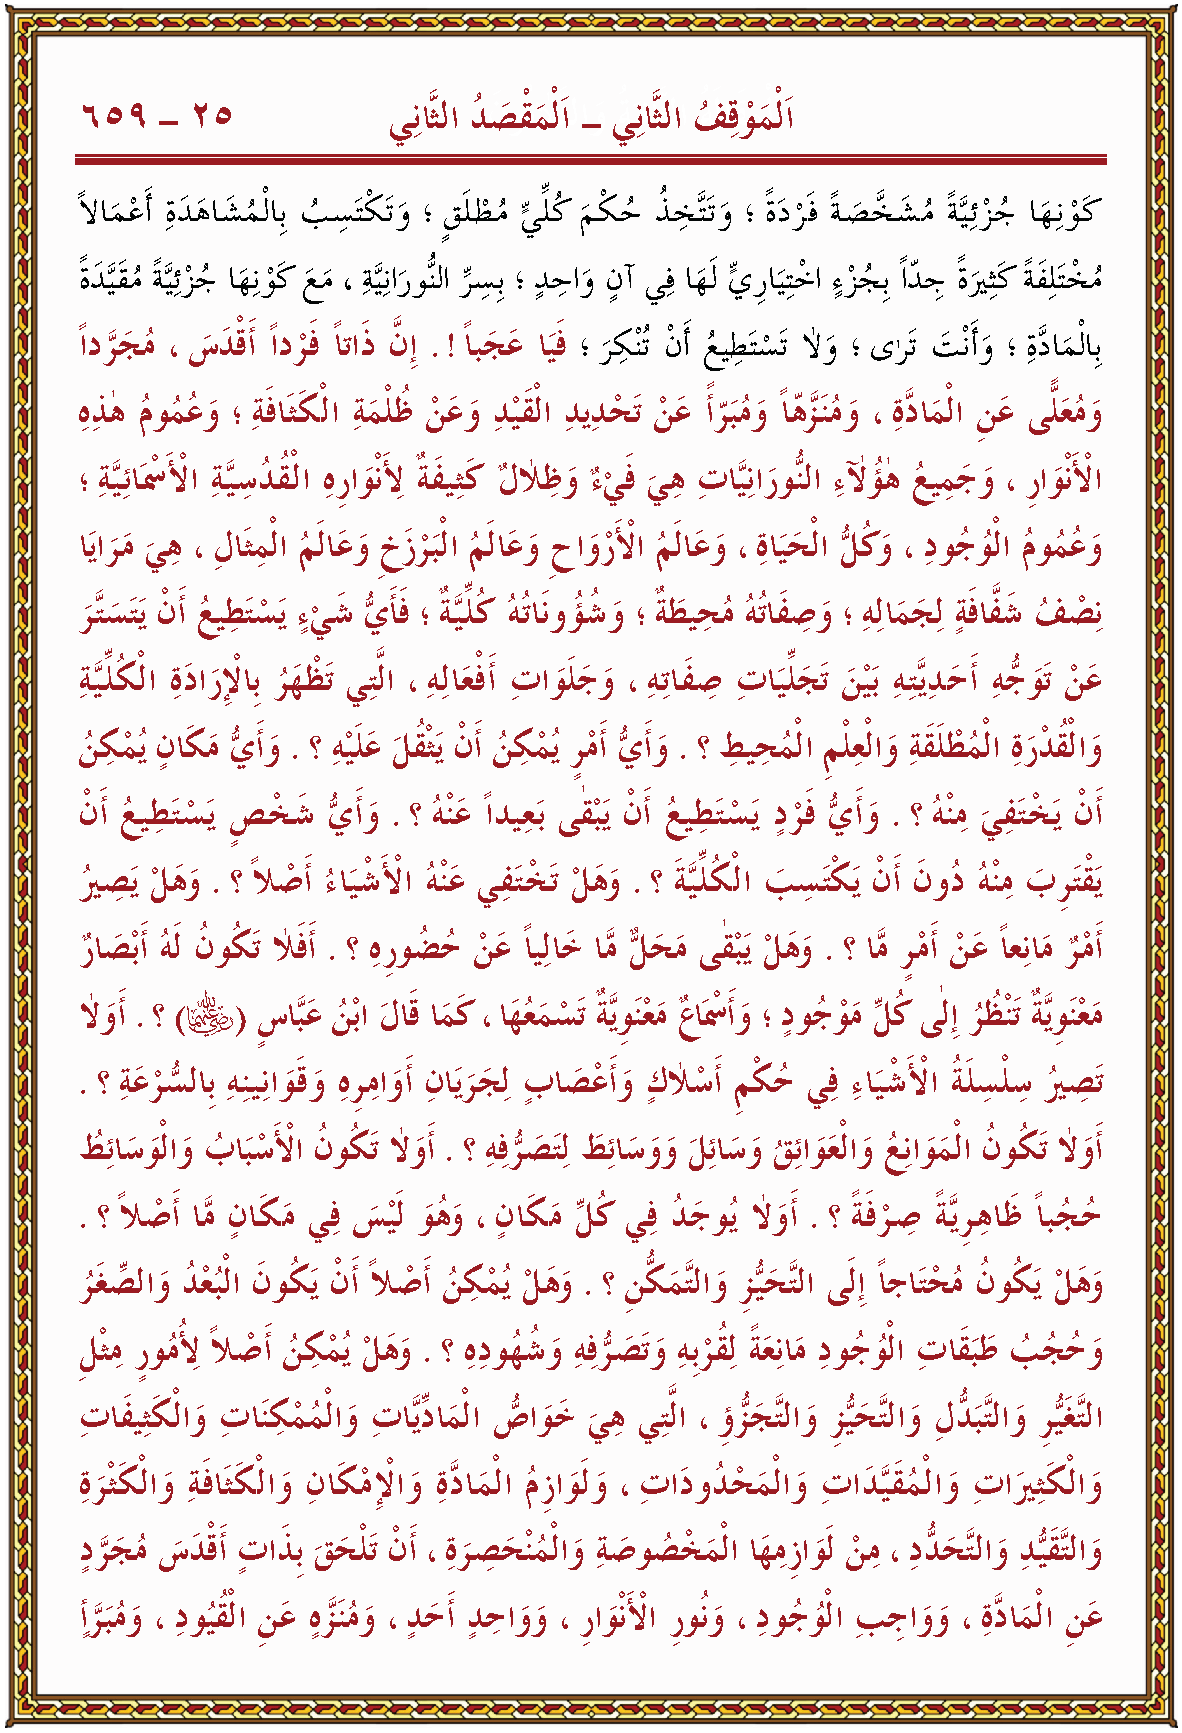 اَلْمَوْقِفُ الثَّانِي – اَلْمَقْصَدُ الثَّانِي ٢٥ – ٦٥٩
كَوْنِهَا جُزْئِيَّةً مُشَخَّصَةً فَرْدَةً ؛ وَتَتَّخِذُ حُكْمَ كُلِّيٍّ مُطْلَقٍ ؛ وَتَكْتَسِبُ بِالْمُشَاهَدَةِ أَعْمَالاً
مُخْتَلِفَةً كَثِيرَةً جِدّاً بِجُزْءٍ اخْتِيَارِيٍّ لَهَا فِي آنٍ وَاحِدٍ ؛ بِسِرِّ النُّورَانِيَّةِ ، مَعَ كَوْنِهَا جُزْئِيَّةً مُقَيَّدَةً
بِالْمَادَّةِ ؛ وَأَنْتَ تَرٰى ؛ وَلاٰ تَسْتَطِيعُ أَنْ تُنْكِرَ ؛ فَيَا عَجَباً ! . إِنَّ ذَاتاً فَرْداً أَقْدَسَ ، مُجَرَّداً
وَمُعَلًّى عَنِ الْمَادَّةِ ، وَمُنَزَّهاً وَمُبَرّأً عَنْ تَحْدِيدِ الْقَيْدِ وَعَنْ ظُلْمَةِ الْكَثَافَةِ ؛ وَعُمُومُ هٰذِهِ
الْأَنْوَارِ ، وَجَمِيعُ هٰؤُلَآءِ النُّورَانِيَّاتِ هِيَ فَيْءٌ وَظِلاٰلٌ كَثِيفَةٌ لِأَنْوَارِهِ الْقُدُسِيَّةِ الْأَسْمَائِيَّةِ ؛
وَعُمُومُ الْوُجُودِ ، وَكُلُّ الْحَيَاةِ ، وَعَالَمُ الْأَرْوَاحِ وَعَالَمُ الْبَرْزَخِ وَعَالَمُ الْمِثَالِ ، هِيَ مَرَايَا
نِصْفُ شَفَّافَةٍ لِجَمَالِهِ ؛ وَصِفَاتُهُ مُحِيطَةٌ ؛ وَشُؤُونَاتُهُ كُلِّيَّةٌ ؛ فَأَيُّ شَيْءٍ يَسْتَطِيعُ أَنْ يَتَسَتَّرَ
عَنْ تَوَجُّهِ أَحَدِيَّتِهِ بَيْنَ تَجَلِّيَاتِ صِفَاتِهِ ، وَجَلَوَاتِ أَفْعَالِهِ ، الَّتِي تَظْهَرُ بِالْإِرَادَةِ الْكُلِّيَّةِ
وَالْقُدْرَةِ الْمُطْلَقَةِ وَالْعِلْمِ الْمُحِيطِ ؟ . وَأَيُّ أَمْرٍ يُمْكِنُ أَنْ يَثْقُلَ عَلَيْهِ ؟ . وَأَيُّ مَكَانٍ يُمْكِنُ
أَنْ يَخْتَفِيَ مِنْهُ ؟ . وَأَيُّ فَرْدٍ يَسْتَطِيعُ أَنْ يَبْقٰى بَعِيداً عَنْهُ ؟ . وَأَيُّ شَخْصٍ يَسْتَطِيعُ أَنْ
يَقْتَرِبَ مِنْهُ دُونَ أَنْ يَكْتَسِبَ الْكُلِّيَّةَ ؟ . وَهَلْ تَخْتَفِي عَنْهُ الْأَشْيَاءُ أَصْلاً ؟ . وَهَلْ يَصِيرُ
أَمْرٌ مَانِعاً عَنْ أَمْرٍ مَّا ؟ . وَهَلْ يَبْقٰى مَحَلٌّ مَّا خَالِياً عَنْ حُضُورِهِ ؟ . أَفَلاٰ تَكُونُ لَهُ أَبْصَارٌ
مَعْنَوِيَّةٌ تَنْظُرُ إِلٰى كُلِّ مَوْجُودٍ ؛ وَأَسْمَاعٌ مَعْنَوِيَّةٌ تَسْمَعُهَا ، كَمَا قَالَ ابْنُ عَبَّاسٍ (رضي الله عنه) ؟ . أَوَلاٰ
تَصِيرُ سِلْسِلَةُ الْأَشْيَاءِ فِي حُكْمِ أَسْلاٰكٍ وَأَعْصَابٍ لِجَرَيَانِ أَوَامِرِهِ وَقَوَانِينِهِ بِالسُّرْعَةِ ؟ .
أَوَلاٰ تَكُونُ الْمَوَانِعُ وَالْعَوَائِقُ وَسَائِلَ وَوَسَائِطَ لِتَصَرُّفِهِ ؟ . أَوَلاٰ تَكُونُ الْأَسْبَابُ وَالْوَسَائِطُ
حُجُباً ظَاهِرِيَّةً صِرْفَةً ؟ . أَوَلاٰ يُوجَدُ فِي كُلِّ مَكَانٍ ، وَهُوَ لَيْسَ فِي مَكَانٍ مَّا أَصْلاً ؟ .
وَهَلْ يَكُونُ مُحْتَاجاً إِلَى التَّحَيُّزِ وَالتَّمَكُّنِ ؟ . وَهَلْ يُمْكِنُ أَصْلاً أَنْ يَكُونَ الْبُعْدُ وَالصِّغَرُ
وَحُجُبُ طَبَقَاتِ الْوُجُودِ مَانِعَةً لِقُرْبِهِ وَتَصَرُّفِهِ وَشُهُودِهِ ؟ . وَهَلْ يُمْكِنُ أَصْلاً لِأُمُورٍ مِثْلِ
التَّغَيُّرِ وَالتَّبَدُّلِ وَالتَّحَيُّزِ وَالتَّجَزُّؤِ ، الَّتِي هِيَ خَوَاصُّ الْمَادِّيَّاتِ وَالْمُمْكِنَاتِ وَالْكَثِيفَاتِ
وَالْكَثِيرَاتِ وَالْمُقَيَّدَاتِ وَالْمَحْدُودَاتِ ، وَلَوَازِمُ الْمَادَّةِ وَالْإِمْكَانِ وَالْكَثَافَةِ وَالْكَثْرَةِ
وَالتَّقَيُّدِ وَالتَّحَدُّدِ ، مِنْ لَوَازِمِهَا الْمَخْصُوصَةِ وَالْمُنْحَصِرَةِ ، أَنْ تَلْحَقَ بِذَاتٍ أَقْدَسَ مُجَرَّدٍ
عَنِ الْمَادَّةِ ، وَوَاجِبِ الْوُجُودِ ، وَنُورِ الْأَنْوَارِ ، وَوَاحِدٍ أَحَدٍ ، وَمُنَزَّهٍ عَنِ الْقُيُودِ ، وَمُبَرَّأٍ